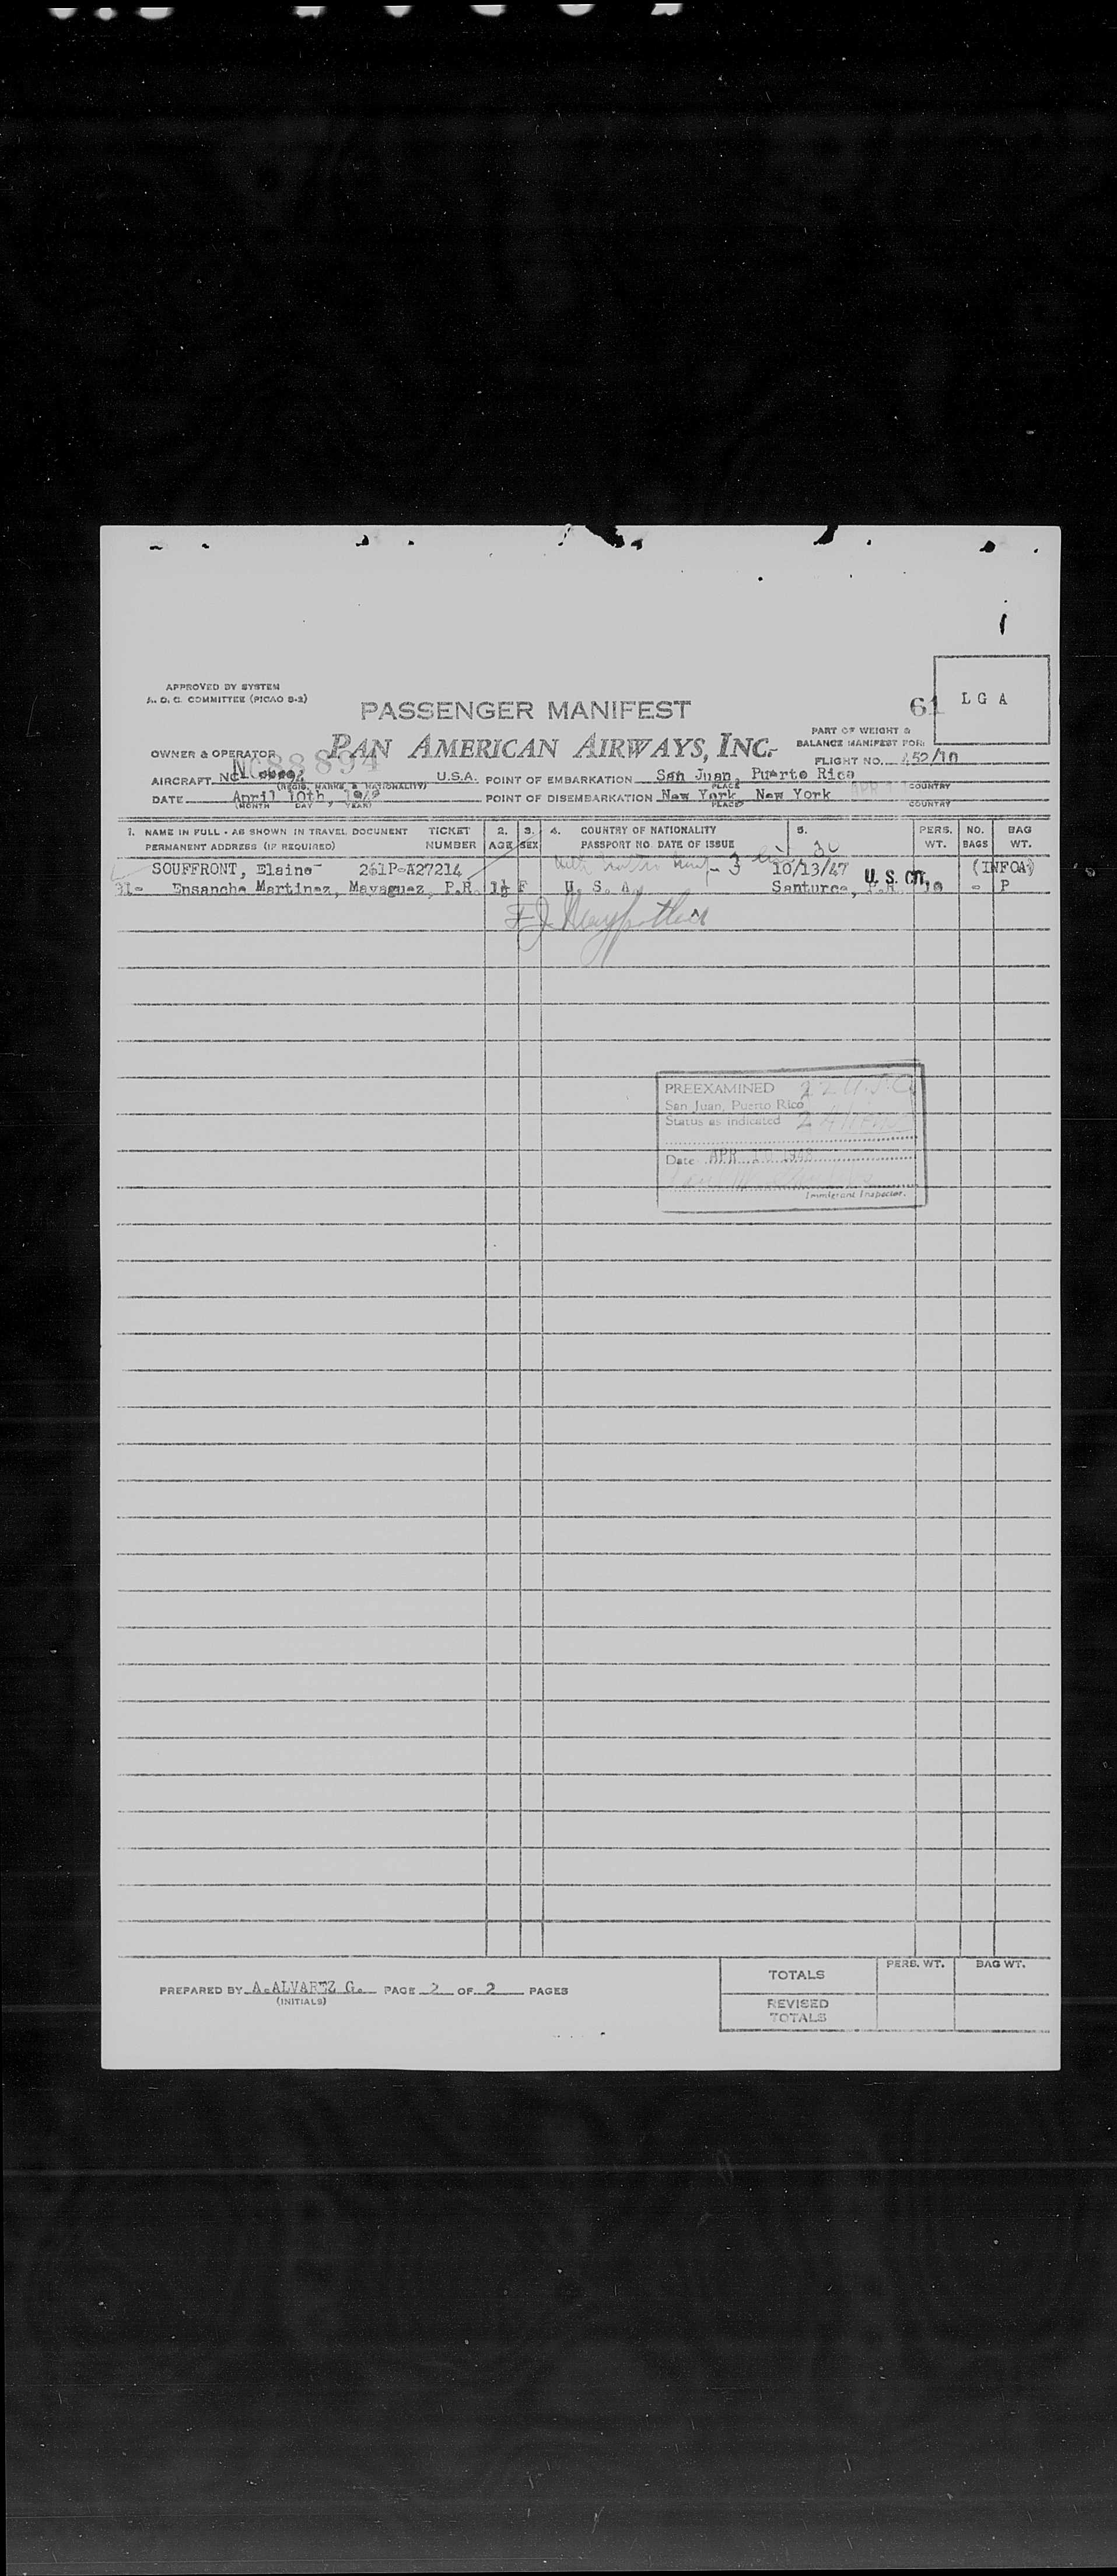 APPROVED BY SYSTEM
A. O. C. COMMITTEE (PICAO 8-2)
PASSENGER MANIFEST
61
L G A
PAN AMERICAN AIRWAYS, INC.
PART OF WEIGHT &
BALANCE MANIFEST FOR:
OWNER & OPERATOR
NC88894
FLIGHT NO. 452/10
AIRCRAFT NC- U.S.A. POINT OF EMBARKATION San Juan, Puerto Rico
(REGIS. MARKS & NATIONALITY) PLACE COUNTRY
DATE April 10th, 1948 POINT OF DISEMBARKATION New York New York
MONTH DAY YEAR) PLACE COUNTRY
1. NAME IN FULL - AS SHOWN IN TRAVEL DOCUMENT TICKET 2. 3. 4. COUNTRY OF NATIONALITY 5. PERS. NO. BAG
PERMANENT ADDRESS (IF REQUIRED) NUMBER AGE SEX PASSPORT NO. DATE OF ISSUE WT. BAGS WT.
SOUFFRONT, Elaine 261P-A27214 3 10/13/47 U. S. CIT. (INFOA)
31- Ensanche Martinez, Mayaguez, P.R. 1½ F U. S. A. Santurce, P.R. 10 - P
PREEXAMINED 22 U.S.C
San Juan, Puerto Rico
Status as indicated 2 Aliens
Date APR 10 1948
Immigrant Inspector.
PERS. WT. BAG WT.
TOTALS
PREPARED BY A.ALVAREZ G. PAGE 2 OF 2 PAGES
(INITIALS)
REVISED
TOTALS